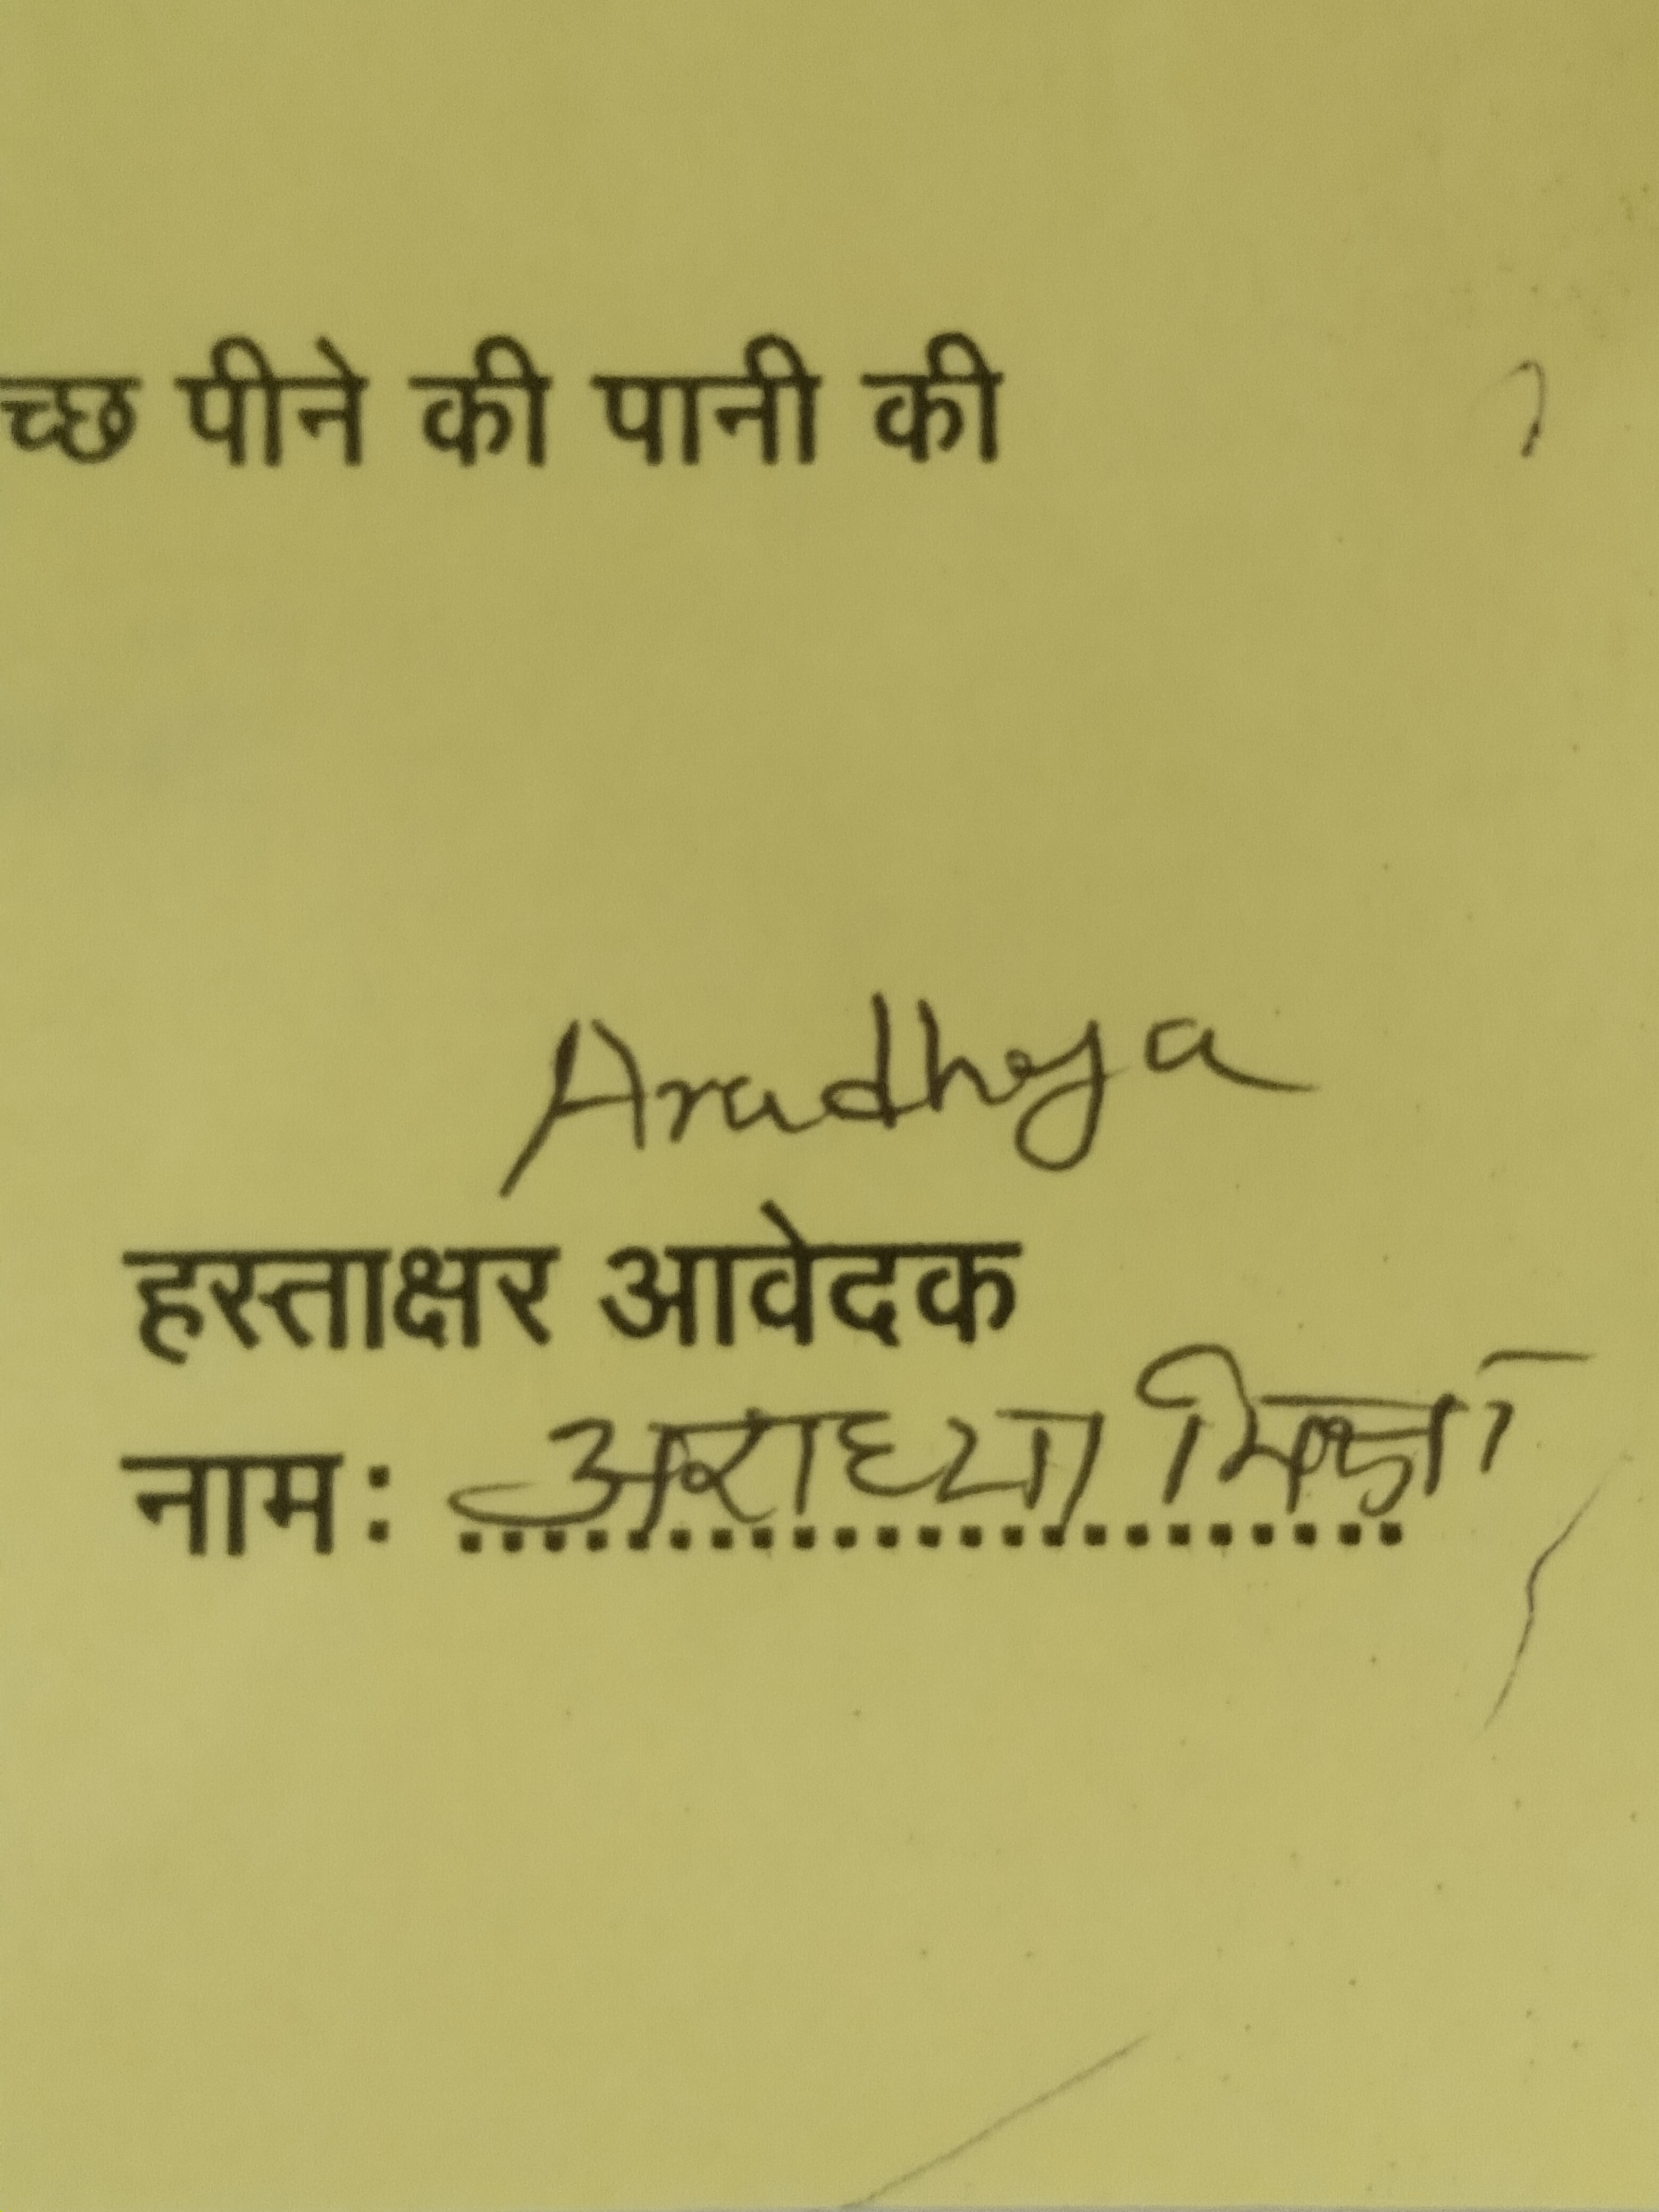 च्छ पीने की पानी की
Aradhya
हस्ताक्षर आवेदक
नामः अराध्या